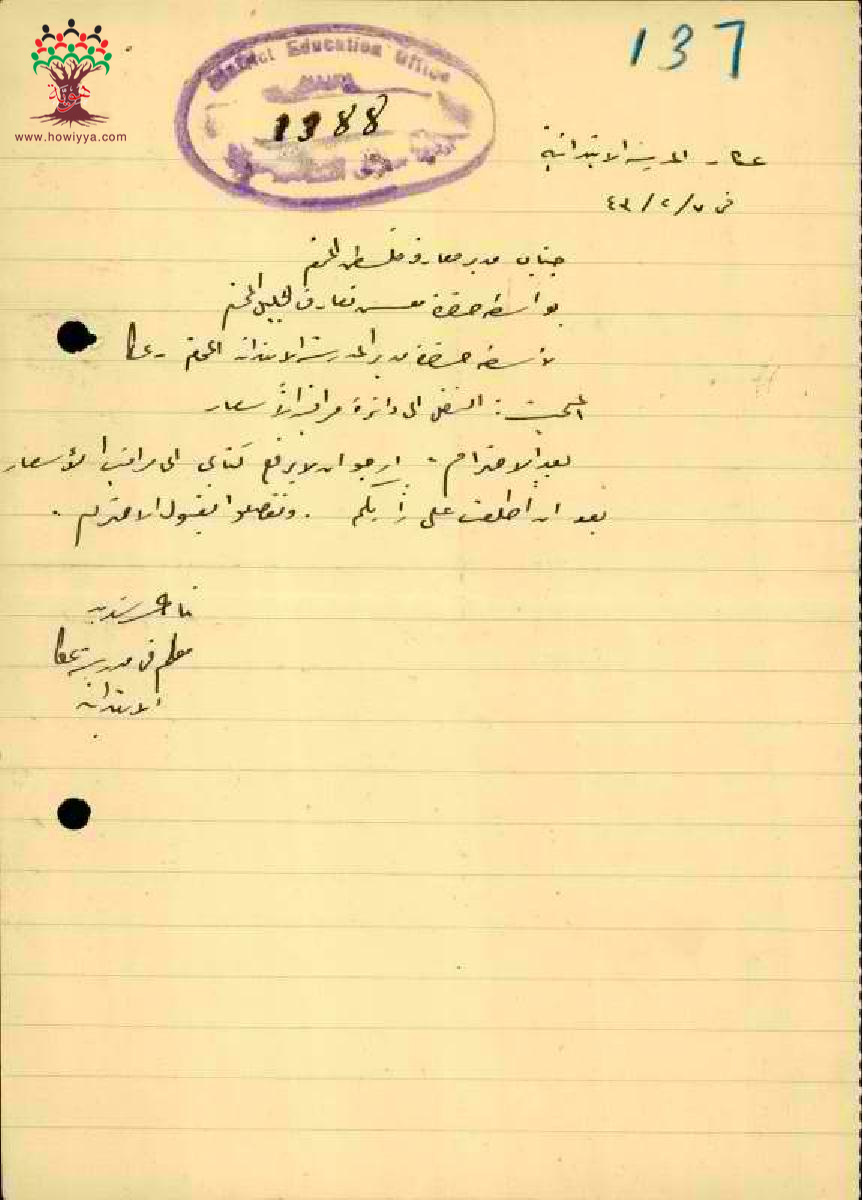 137
District Education Office
1388
هوية
www.howiyya.com
عكا - المدرسة الابتدائية
في ٧/٢/٤٣
جناب مدير معارف فلسطين المحترم
بواسطة حضرة مفتش معارف الجليل المحترم
بواسطة حضرة مدير المدرسة الابتدائية المحترم - عكا
المبحث: النقل الى دائرة مراقبة الأسعار
بعد الاحترام، ارجو ان لا يرفع كتابي الى مراقب الأسعار
بعد ان أطلعت على رأيكم. وتفضلوا بقبول الاحترام.
معلم في مدرسة عكا
الابتدائية